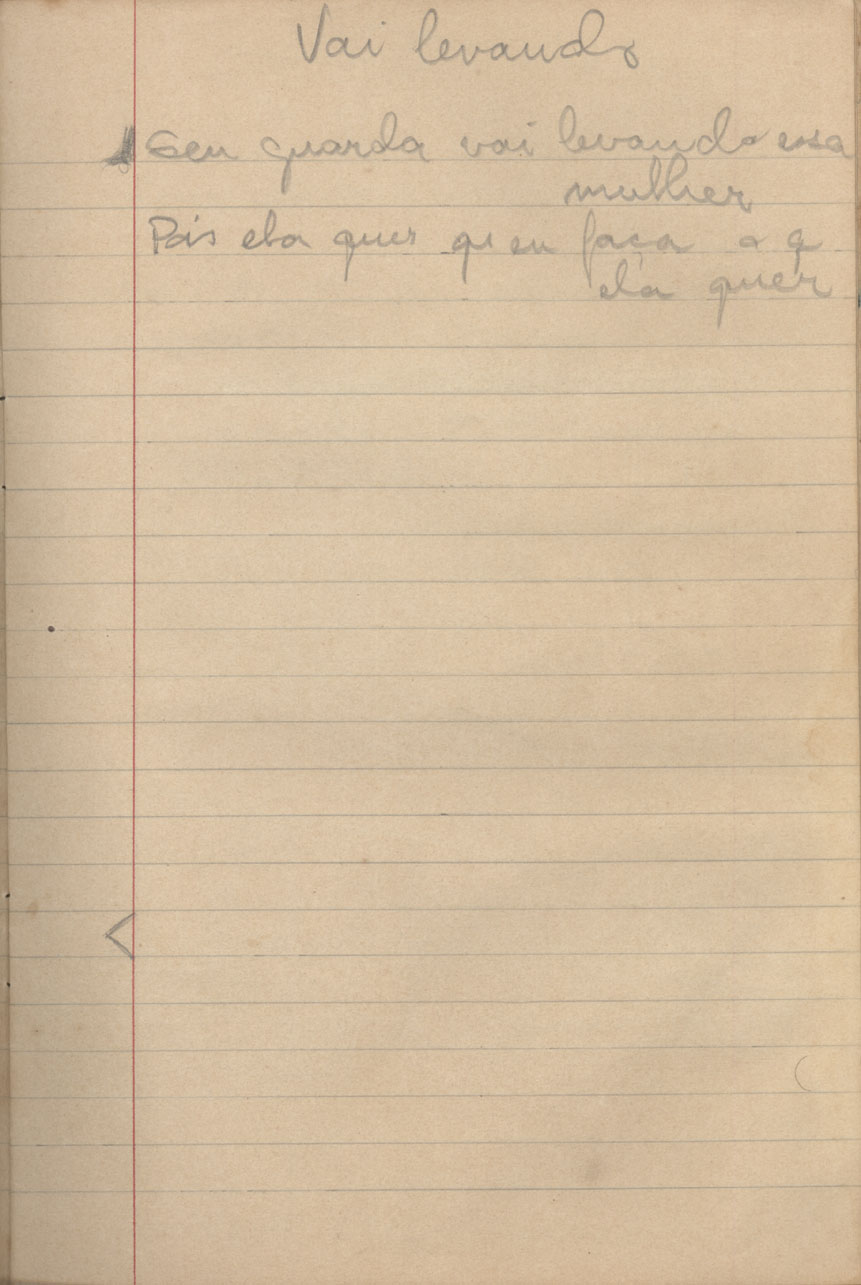 Vai levando
Seu guarda vai levando essa
mulher
Pois ela quer q eu faça o q
ela quer